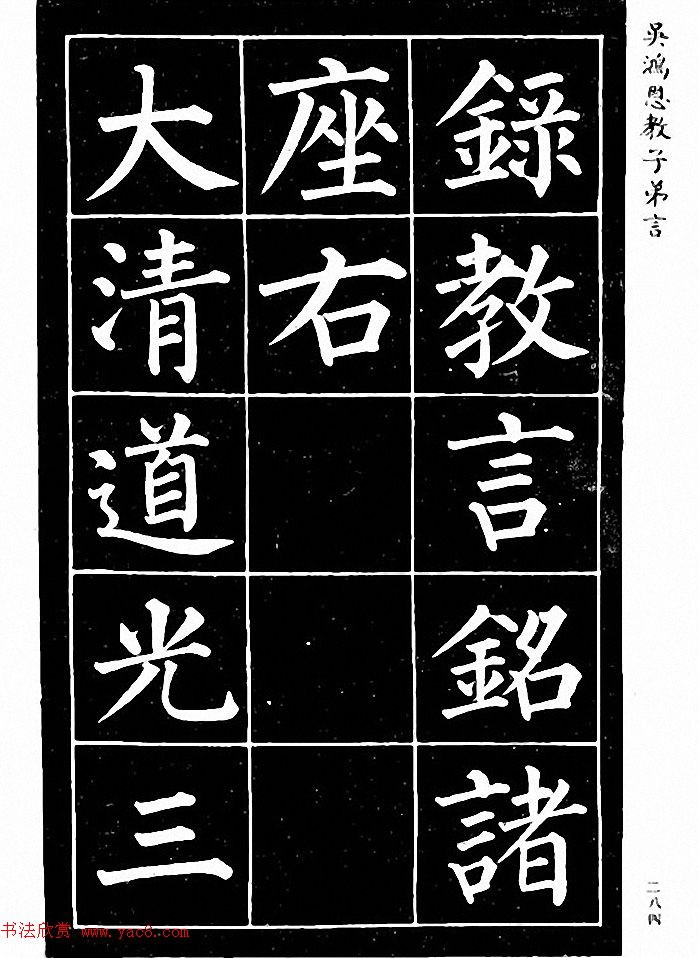 吴鸿恩教子弟言
錄教言銘諸
座右
大清道光三
二八四
书法欣赏 www.yac8.com